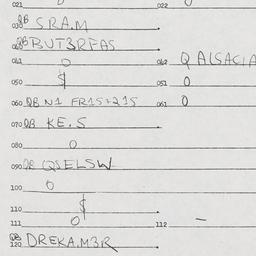 021 022
030 QB SRA.M
040 QB BUT3RFAS
041 0 042 Q ALSACIA
050 $ 051 0
060 QB N1 FR15+215 061 0
070 QB KE.S
080 0
090 QB QSELSW
100 0
110 $
111 0 112 -
120 QB DREKA.M3R